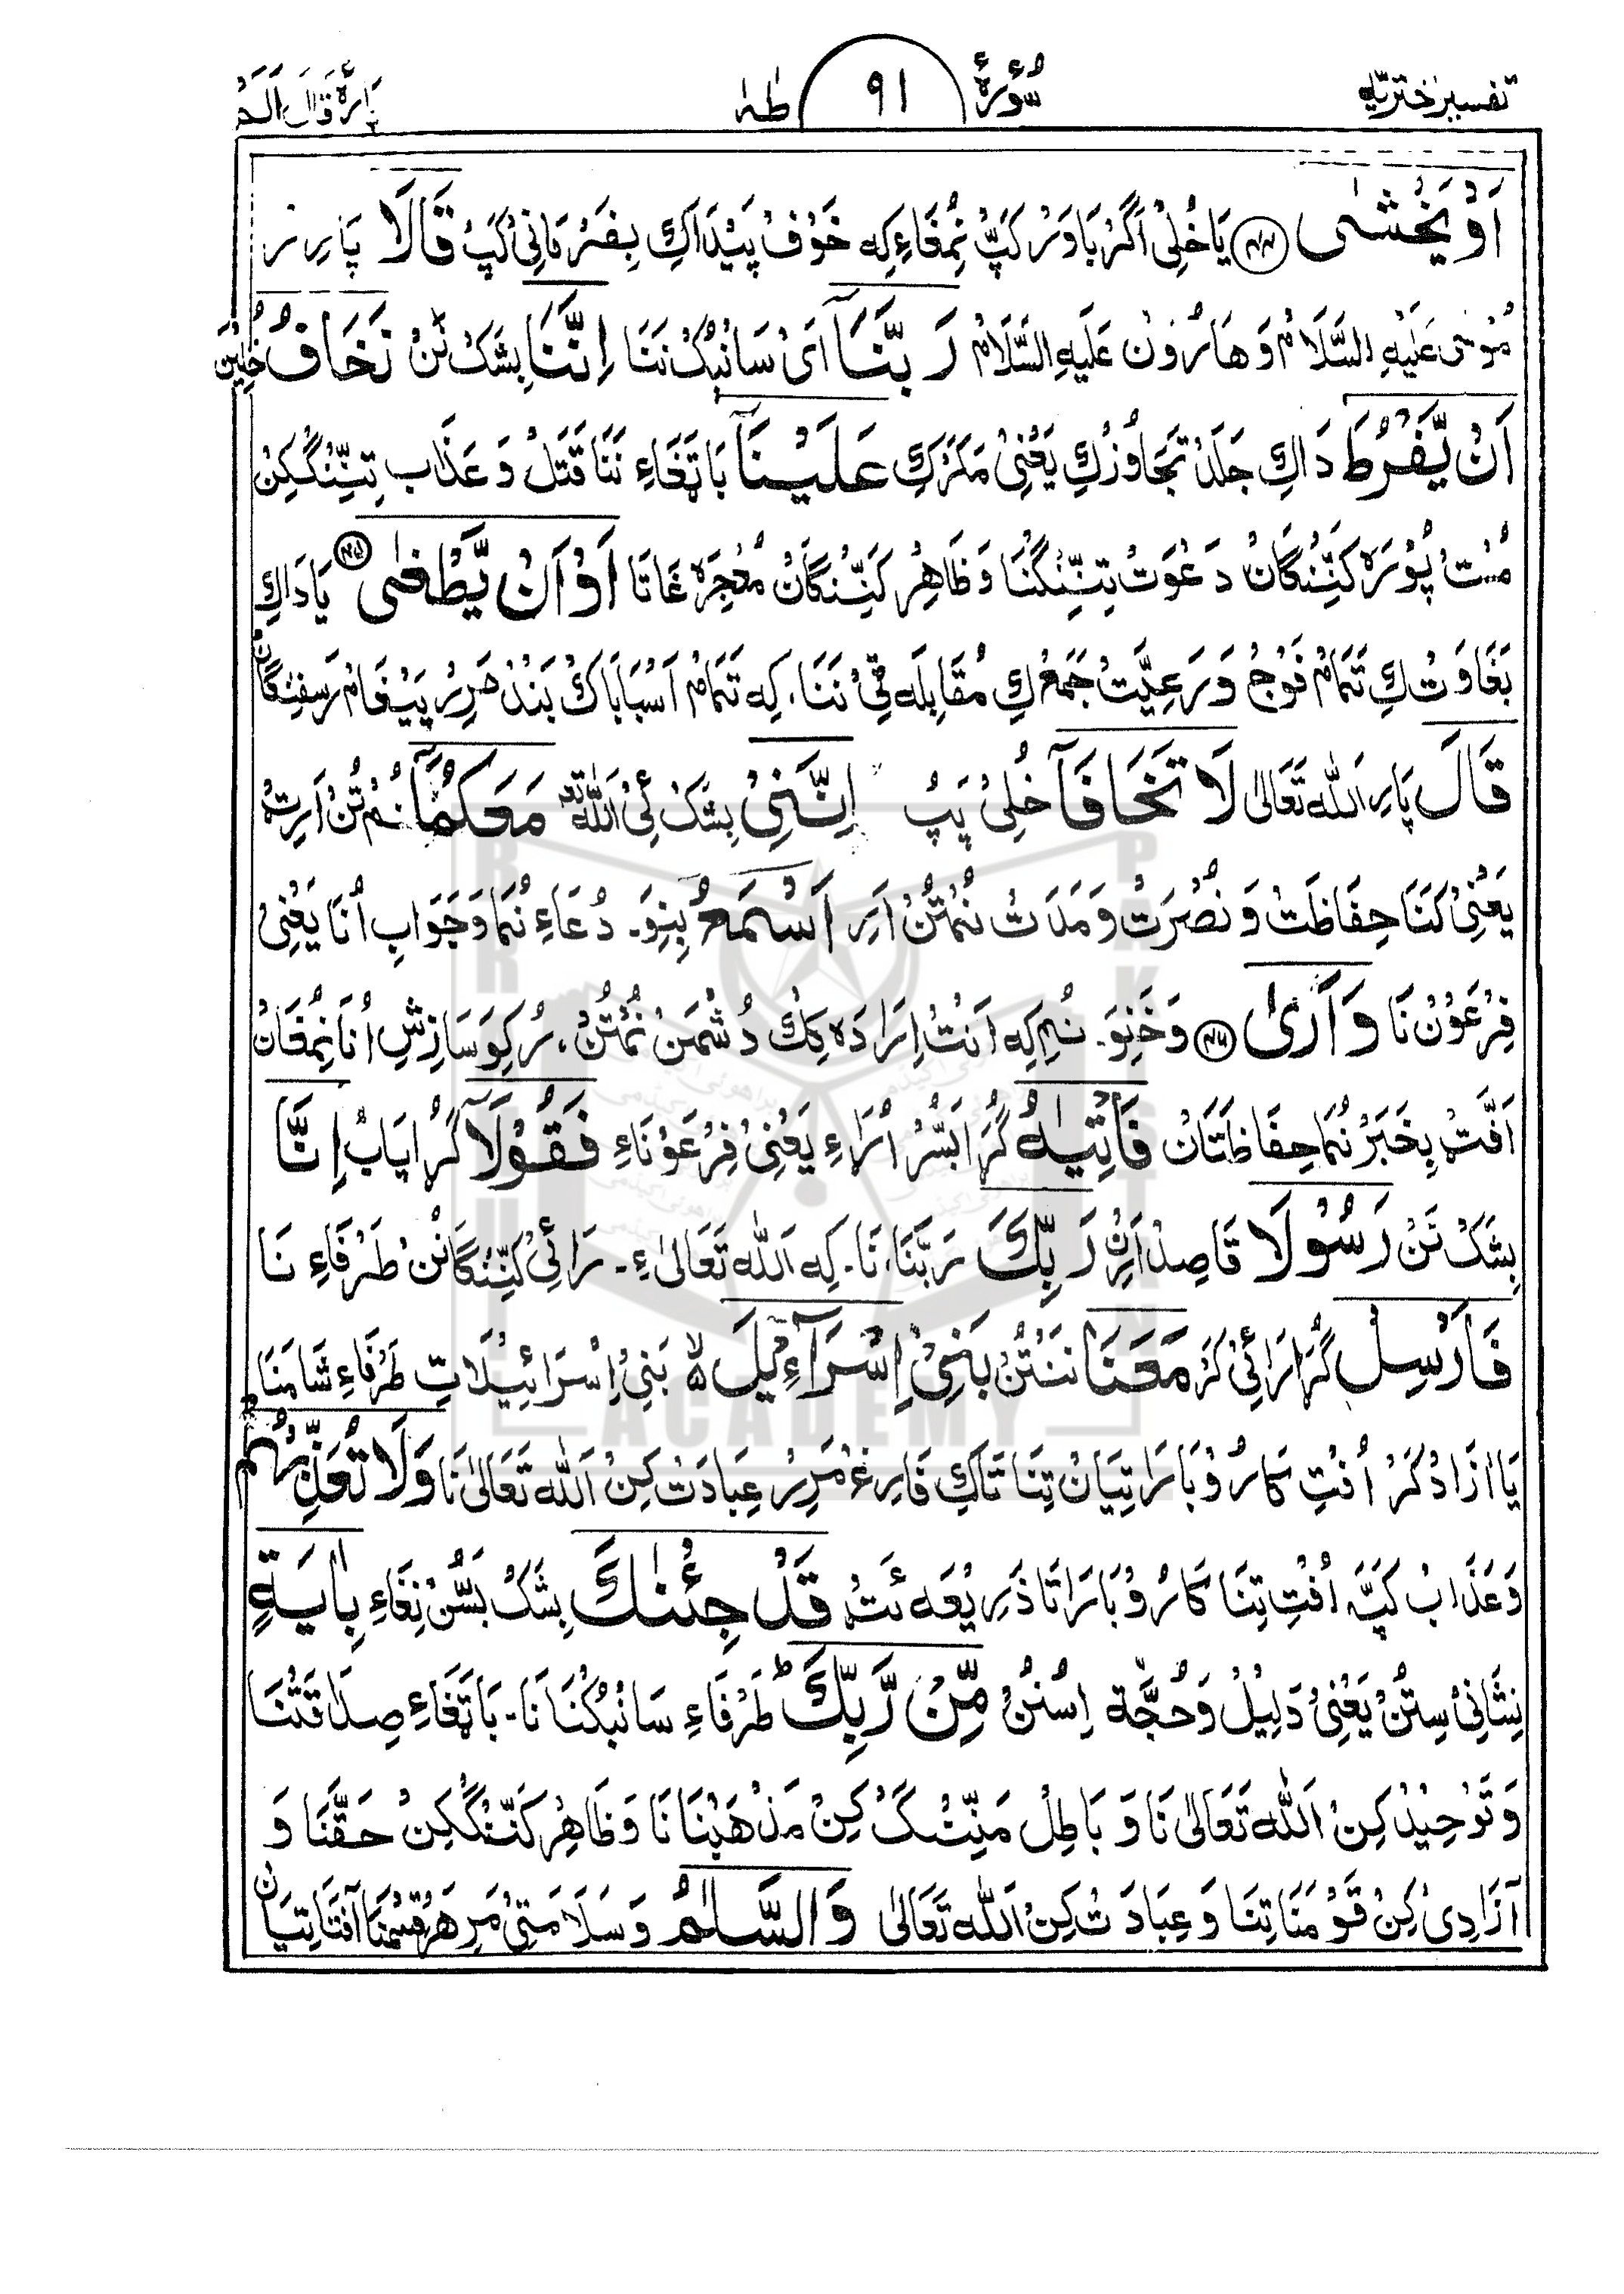 تفسیر اختریہ سُوْرَۂ ۹۱ طٰہٰ پَارَہ قَالَ اَلَمْ
اَوْ يَخْشٰى ﴿۴۴﴾ يَا خُلِىْ اَگَرْ بَاوَرْ كَپّ نُمْغَاءِ كِه خَوْفْ پَيْدَاكِ بِفَرْمَانِىْ كَپّ قَالَا پَارِرْ
مُوْسٰى عَلَيْهِ السَّلَامْ وَ هَارُوْن عَلَيْهِ السَّلَامْ رَبَّنَآ اَىْ سَائبُكْ نَنَا اِنَّنَا بِشَكْ نَنْ نَخَافُ خُلِيْن
اَنْ يَّفْرُطَ دَاكِ جَلَدْ تَجَاوُزْكِ يَعْنِىْ مَكَرْكِ عَلَيْنَآ بَاتِغَاءِ نَنَا قَتَلْ وَ عَذَاب تِنِّنْگَكِنْ
مُسْتْ پُوْرَه كَنِّنْگَانْ دَعْوَتْ تِنِّنْگنَا وَ ظَاهِرْ كَنِّنْگَانْ مُعْجِزَه غَاتَا اَوْ اَنْ يَّطْغٰى ﴿۴۵﴾ يَا دَاكِ
بَغَاوَتْ كِ تَمَامْ فَوْجْ وَ رَعِيَّتْ جَمْعْ كِ مُقَابِلَه قِىْ نَنَا، كِه تَمَامْ اَسْبَابَاكْ بَنْدْ مَرِرْ پَيْغَامْ رَسِفِنْگَانْ
قَالَ پَارِ اَللّٰه تَعَالٰى لَا تَخَافَآ خُلِىْ پَپُ اِنَّنِىْ بِشَكْ اِىْ اَللّٰه مَعَكُمَآ نُمْ تُنْ اَرِتْ
يَعْنِىْ كَنَا حِفَاظَتْ وَ نُصْرَتْ وَ مَدَتْ نُمْتُنْ اَرِ اَسْمَعُ بِنِوَ۔ دُعَاءِ نُمَا وَ جَوَابِ اُنَا يَعْنِىْ
فِرْعَوْنْ نَا وَ اَرٰى ﴿۴۶﴾ وَخَنِوَ۔ نُمِ كِه اَنْتُ اِرَادَه كِكْ دُشْمَنْ نُمْتُنْ، رُكِوَ سَازِشِ اُنَا نُمْغَانْ
اَفَّتْ بِخَبَرْ نُمَا حِفَاظَتَانْ فَاْتِيٰهُ گُرَا بَسُّرْ اُرَاءِ يَعْنِىْ فِرْعَوْنَاءِ فَقُوْلَآ گُرَا پَابْ اِنَّا
بِشَكْ نَنْ رَسُوْلَا قَاصِدْ اَرِنْ رَبِّكَ رَبَّنَا، نَا۔ كِه اَللّٰه تَعَالٰى ءِ۔ رَائِىْ كَنِّنْگَانُنْ طَرْفَاءِ نَا
فَاَرْسِلْ گُرَا رَائِىْ كَرْ مَعَنَا نَنْتُنْ بَنِىْٓ اِسْرَآءِيْلَ ۵ۙ بَنِىْ اِسْرَائِيْلَاتِ طَرْفَاءِ شَامَنَا
يَا اٰزَادْ كَرْ اُفْتِ كَارُوْبَارَاتِيَانْ تِنَا تَاكِ فَارِغْ مَرِرْ عِبَادَتْ كِنْ اَللّٰه تَعَالٰى نَا وَلَا تُعَذِّبْهُمْ
وَ عَذَابْ كَپّه اُفْتِ تِنَا كَارُوْبَارَاتَا ذَرِيْعَه ئَتْ قَدْ جِئْنٰكَ بِشَكْ بَسُّنْ نِغَاءِ بِاٰيَةٍ
نِشَانِىْ سِتُنْ يَعْنِىْ دَلِيْلْ وَ حُجَّة اِسْتُنْ مِّنْ رَّبِّكَ ؕ طَرْفَاءِ سَائبُكْنَا نَا۔ بَاتِغَاءِ صَدَاقَتْنَا
وَ تَوْحِيْدْ كِنْ اَللّٰه تَعَالٰى نَا وَ بَاطِلْ مَنِّنْگ كِنْ مَذْهَبْنَا نَا وَ ظَاهِرْ كَنِّنْگَكِنْ حَقَّنَا وَ
آزَادِىْ كِنْ قَوْمَنَا تِنَا وَ عِبَادَتْ كِنْ اَللّٰه تَعَالٰى وَالسَّلٰمُ وَ سَلَامَتِىْ مَرِ هَرْ قِسْمْنَا آفَتَاتِيَانْ
BRAHUI
ACADEMY
PAKISTAN